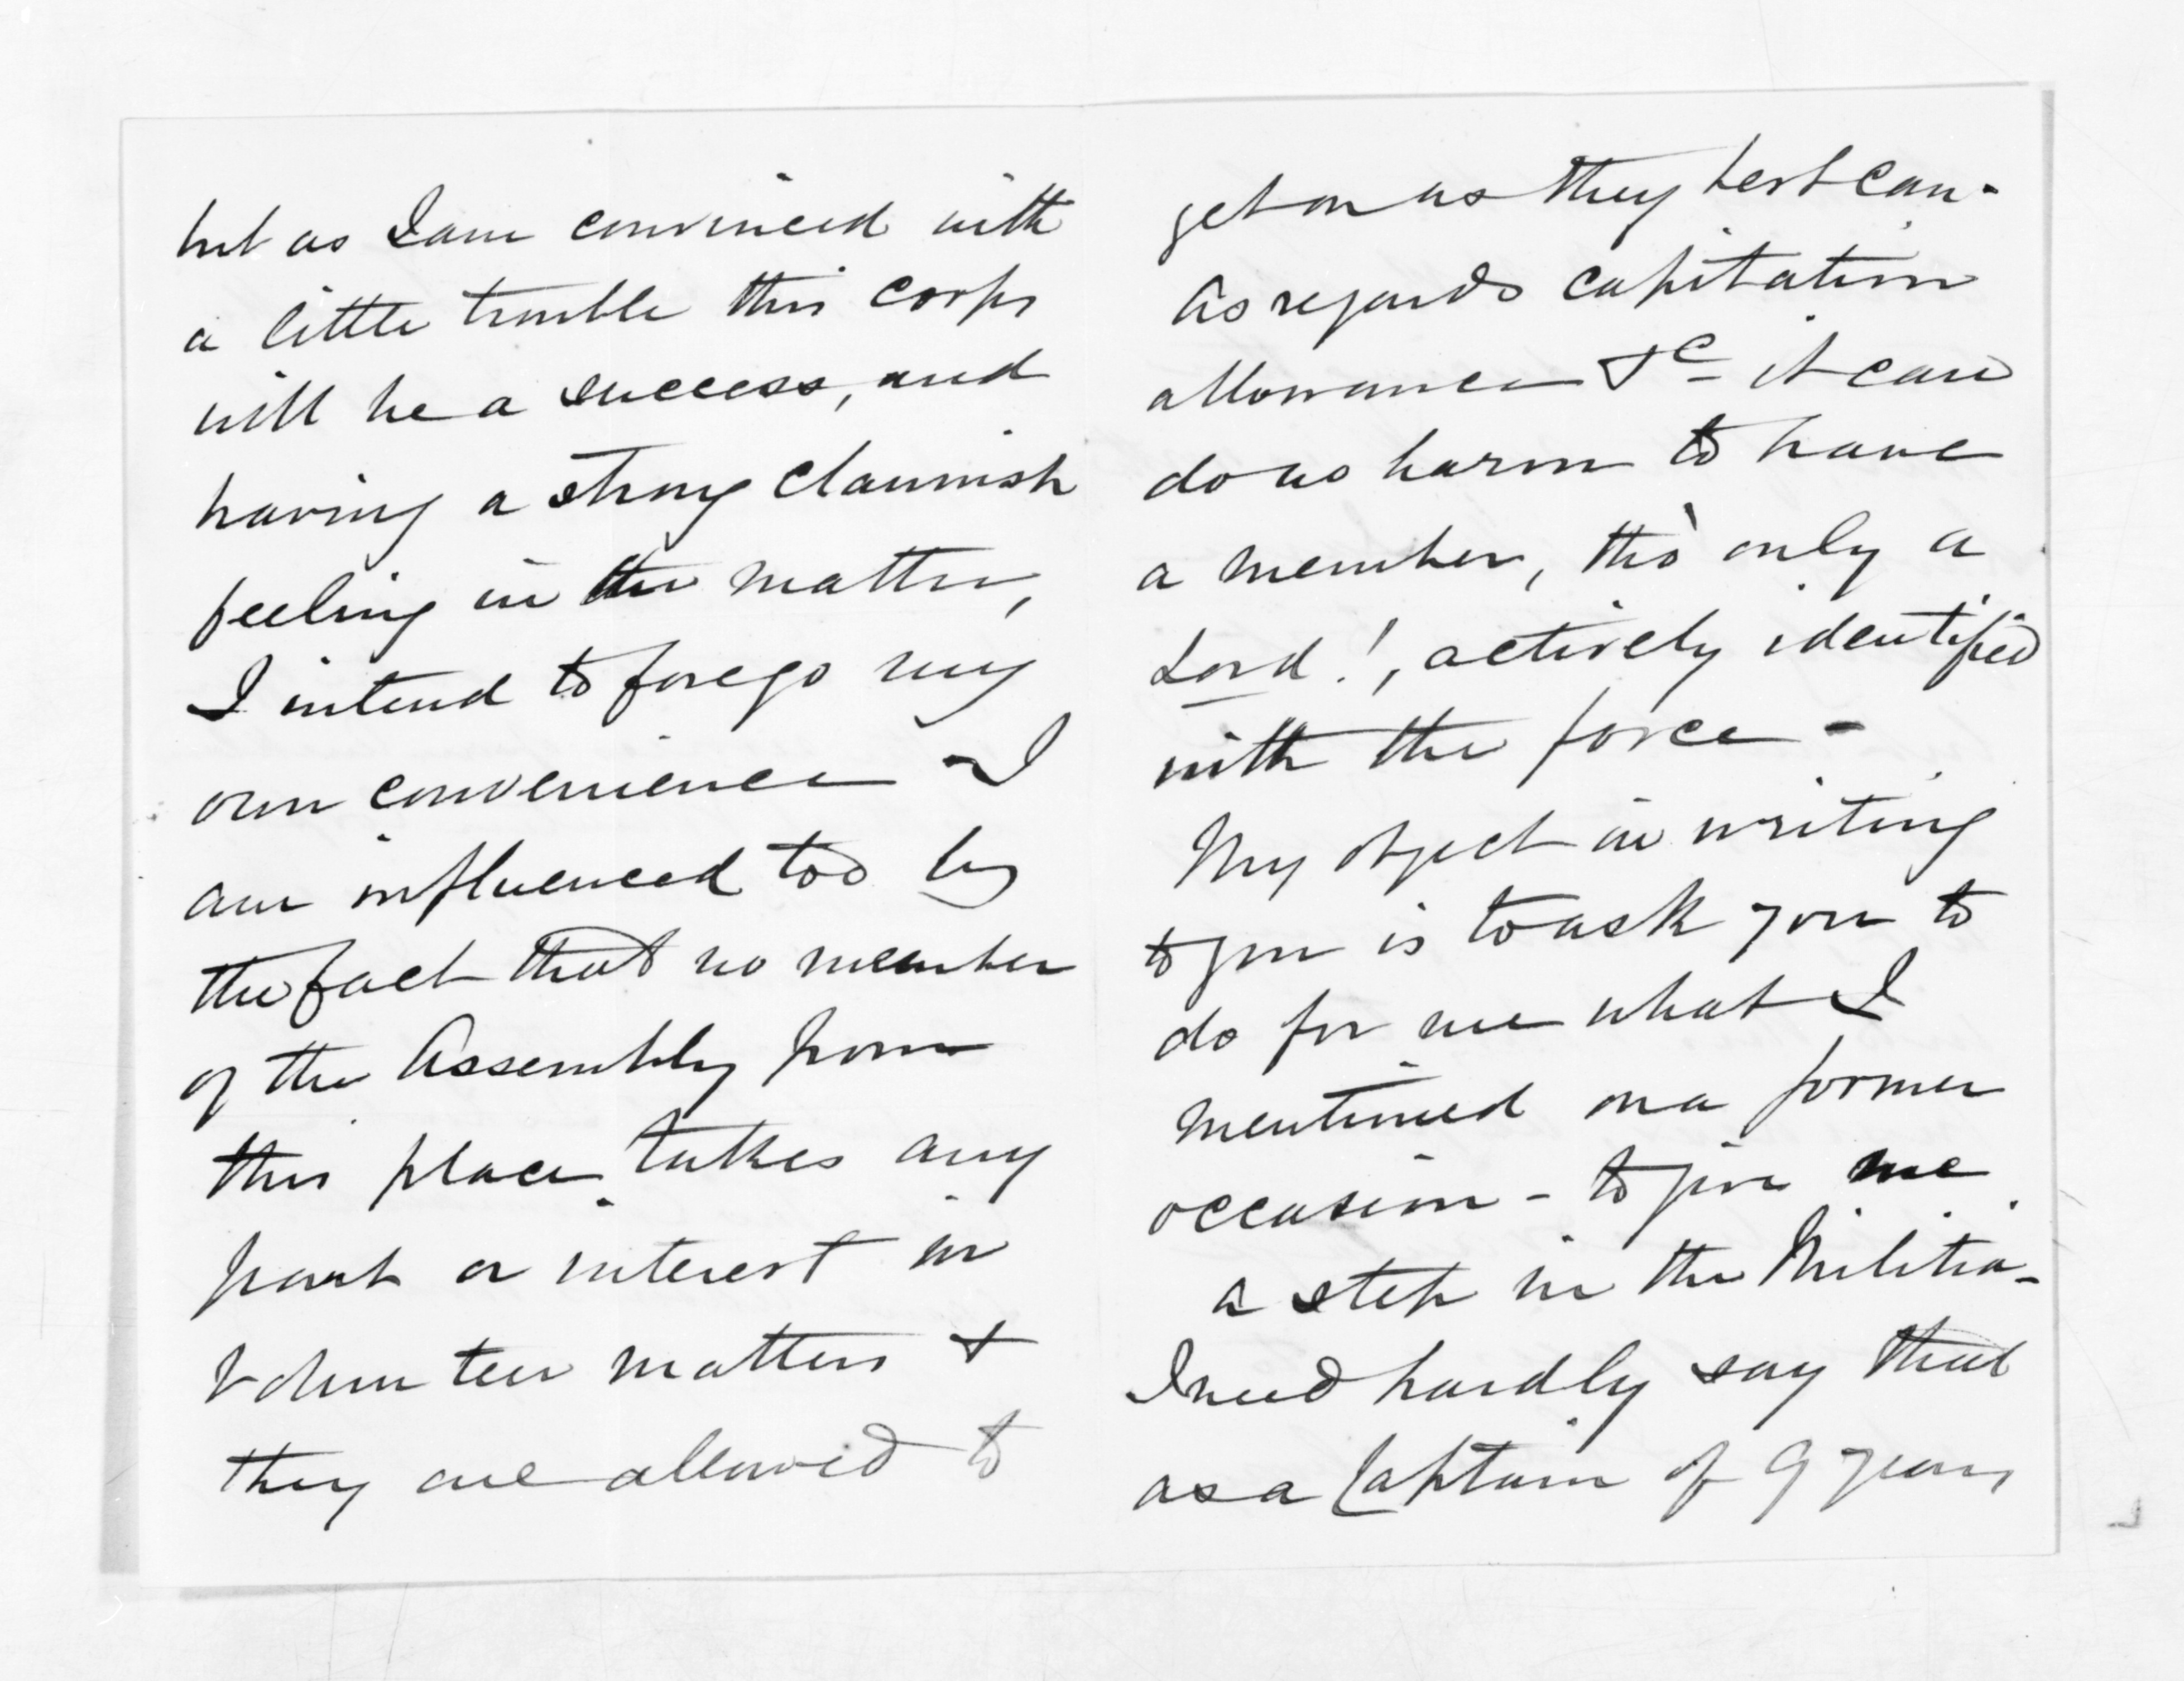 but as I am convinced with
a little trouble this corps
will be a success, and
having a strong clannish
feeling in the matter,
I intend to forego my
own convenience - I
am influenced too by
the fact that no member
of the Assembly from
this place takes any
part or interest in
Volunteer matters &
they are allowed to
get on as they best can -
As regards capitation
allowance &c it can
do no harm to have
a member, tho' only a
Lord!, actively identified
with the force -
My object in writing
to you is to ask you to
do for me what I
mentioned on a former
occasion - to give me
a step in the Militia -
I need hardly say that
as a Captain of 9 years